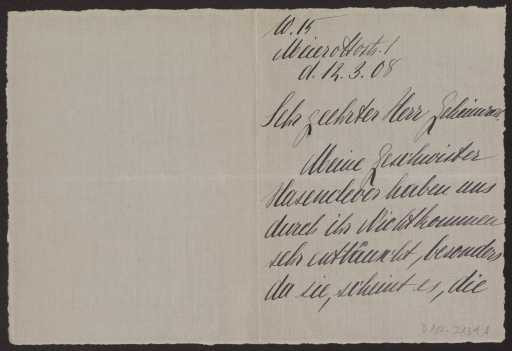 W. 15
Meierottostr. 1
d. 12. 3. 08
Sehr geehrter Herr Geheimrat
Meine Geschwister
Hasenclever haben uns
durch ihr Nichtkommen
sehr enttäuscht, besonders
da sie, scheint es, die